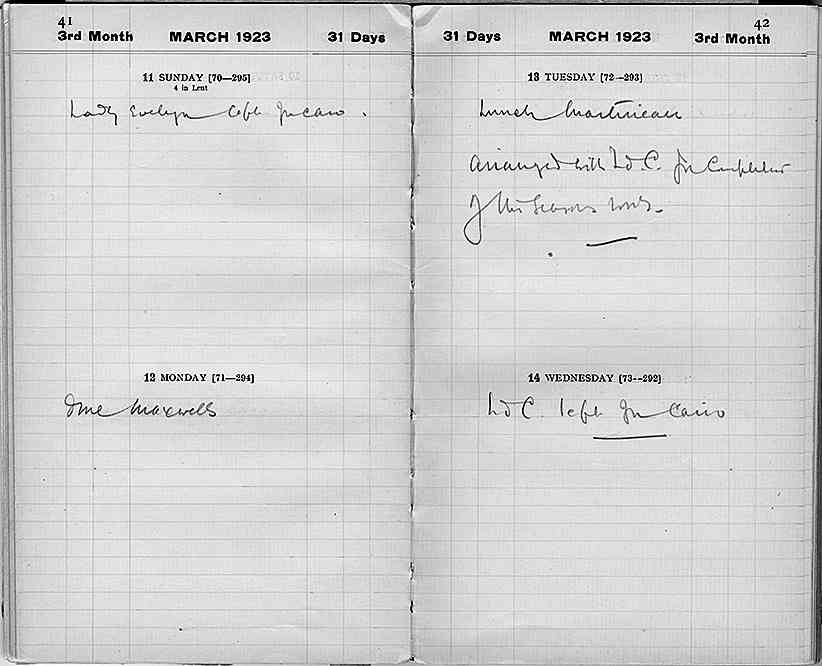 41
3rd Month MARCH 1923 31 Days
11 SUNDAY [70—295]
4 in Lent
Lady Evelyn left for Cairo.
12 MONDAY [71—294]
Dine Maxwells
42
31 Days MARCH 1923 3rd Month
13 TUESDAY [72—293]
Lunch Martineau
Arranged with Ld. C. for Completion
of this Seasons work.
14 WEDNESDAY [73—292]
Ld C. left for Cairo